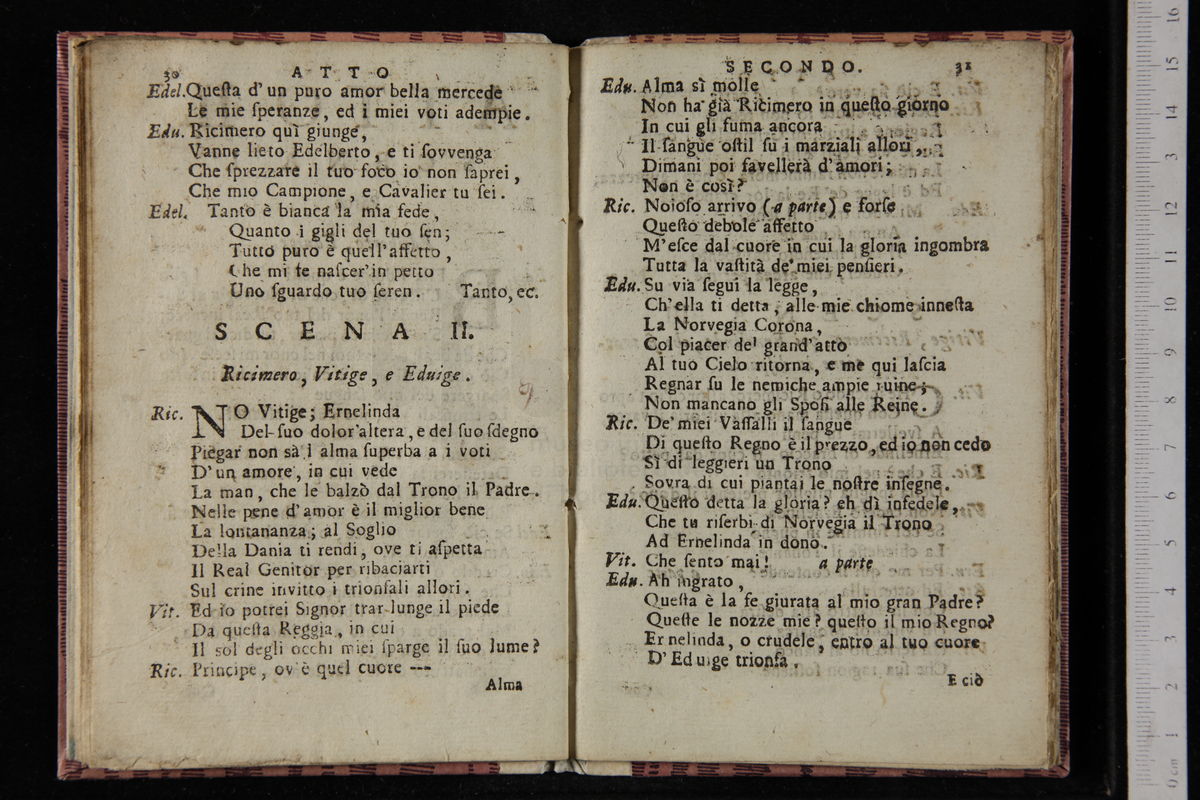 30 ATTO
Edel. Queſta d' un puro amor bella mercede
Le mie ſperanze, ed i miei voti adempie.
Edu. Ricimero quì giunge,
Vanne lieto Edelberto, e ti ſovvenga
Che ſprezzare il tuo foco io non ſaprei,
Che mio Campione, e Cavalier tu ſei.
Edel. Tanto è bianca la mia fede,
Quanto i gigli del tuo ſen;
Tutto puro è quell'affetto,
Che mi fe naſcer'in petto
Uno ſguardo tuo ſeren. Tanto, ec.
SCENA II.
Ricimero, Vitige, e Eduige.
Ric. NO Vitige; Ernelinda
Del ſuo dolor'altera, e del ſuo ſdegno
Piegar non sà l alma ſuperba a i voti
D'un amore, in cui vede
La man, che le balzò dal Trono il Padre.
Nelle pene d'amor è il miglior bene
La lontananza; al Soglio
Della Dania ti rendi, ove ti aſpetta
Il Real Genitor per ribaciarti
Sul crine invitto i trionfali allori.
Vit. Ed io potrei Signor trar lunge il piede
Da queſta Reggia, in cui
Il sol degli occhi miei ſparge il ſuo lume?
Ric. Principe, ov'è quel cuore ---
Alma
SECONDO. 31
Edu. Alma sì molle
Non ha già Ricimero in queſto giorno
In cui gli fuma ancora
Il ſangue oſtil ſu i marziali allori,
Dimani poi favellerà d'amori;
Non è così?
Ric. Noioſo arrivo (a parte) e forſe
Queſto debole affetto
M'eſce dal cuore in cui la gloria ingombra
Tutta la vaſtità de' miei penſieri.
Edu. Su via ſegui la legge,
Ch'ella ti detta, alle mie chiome inneſta
La Norvegia Corona,
Col piacer del grand'atto
Al tuo Cielo ritorna, e me qui laſcia
Regnar ſu le nemiche ampie ruine;
Non mancano gli Spoſi alle Reine.
Ric. De' miei Vaſſalli il ſangue
Di queſto Regno è il prezzo, ed io non cedo
Sì di leggieri un Trono
Sovra di cui piantai le noſtre inſegne.
Edu. Queſto detta la gloria? eh dì infedele,
Che tu riſerbi di Norvegia il Trono
Ad Ernelinda in dono.
Vit. Che ſento mai! a parte
Edu. Ah ingrato,
Queſta è la fe giurata al mio gran Padre?
Queſte le nozze mie? queſto il mio Regno?
Ernelinda, o crudele, entro al tuo cuore
D'Eduige trionfa.
E ciò
0 cm 1 2 3 4 5 6 7 8 9 10 11 12 13 14 15 16